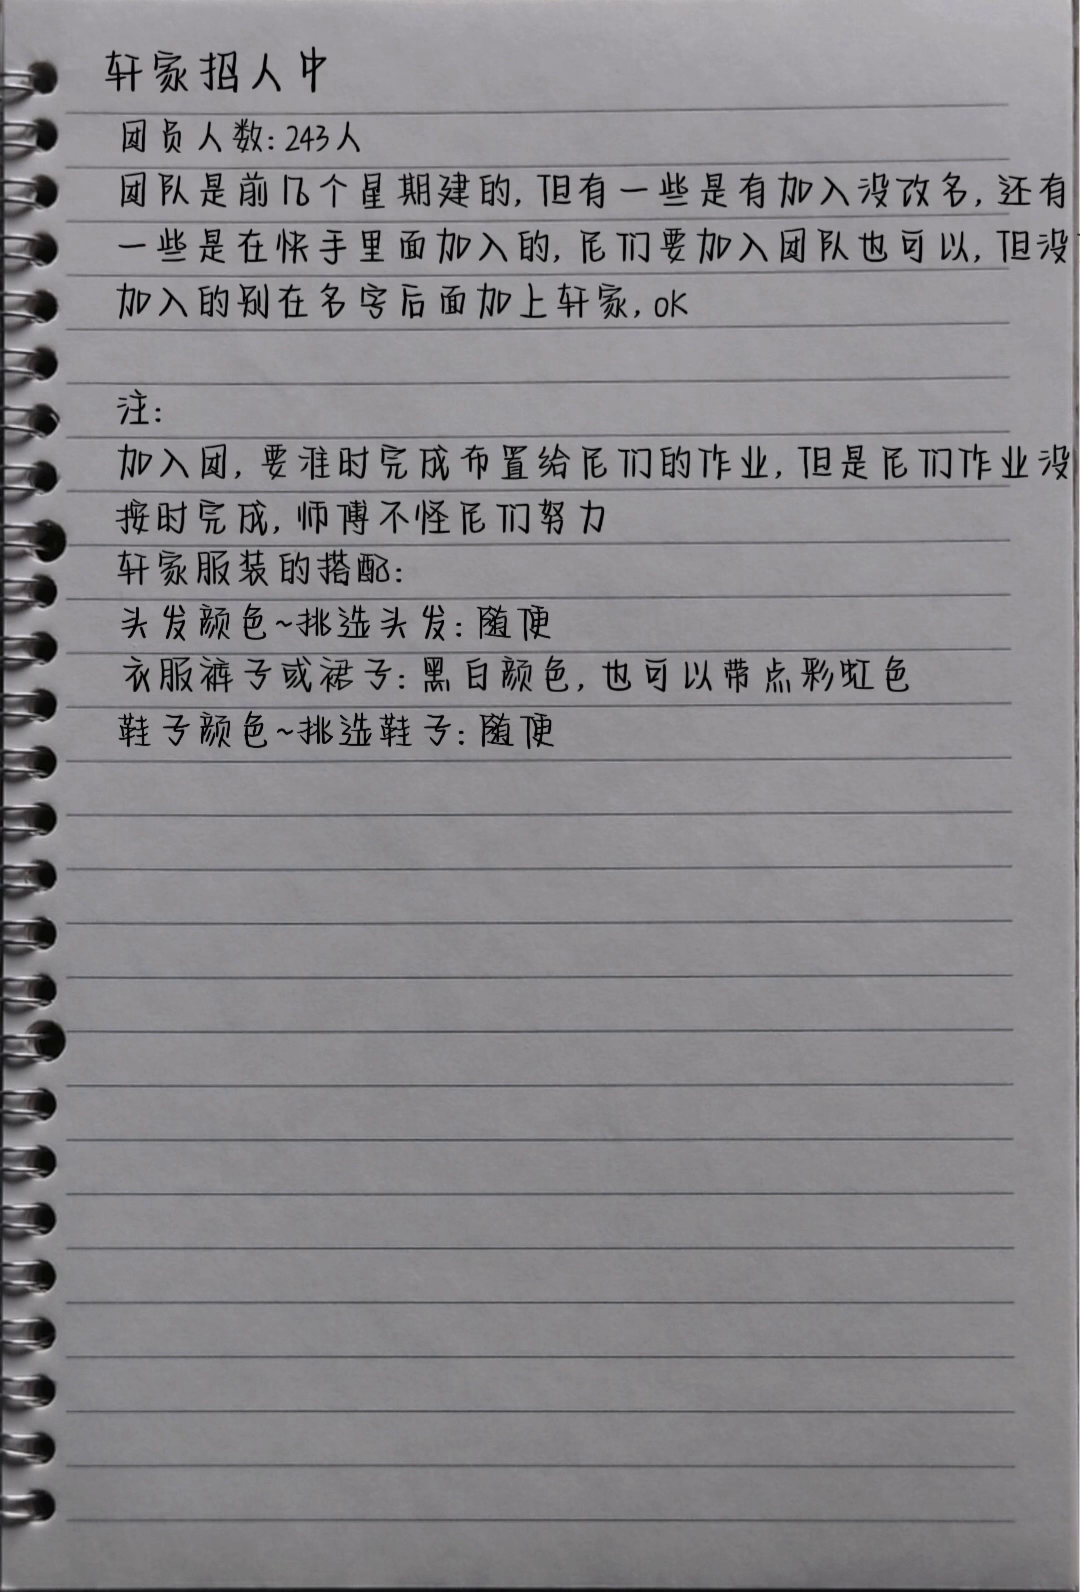 轩家招人中
团员人数:243人
团队是前几个星期建的,但有一些是有加入没改名,还有
一些是在快手里面加入的,尼们要加入团队也可以,但没
加入的别在名字后面加上轩家,OK
注:
加入团,要准时完成布置给尼们的作业,但是尼们作业没
按时完成,师傅不怪尼们努力
轩家服装的搭配:
头发颜色~挑选头发:随便
衣服裤子或裙子:黑白颜色,也可以带点彩虹色
鞋子颜色~挑选鞋子:随便